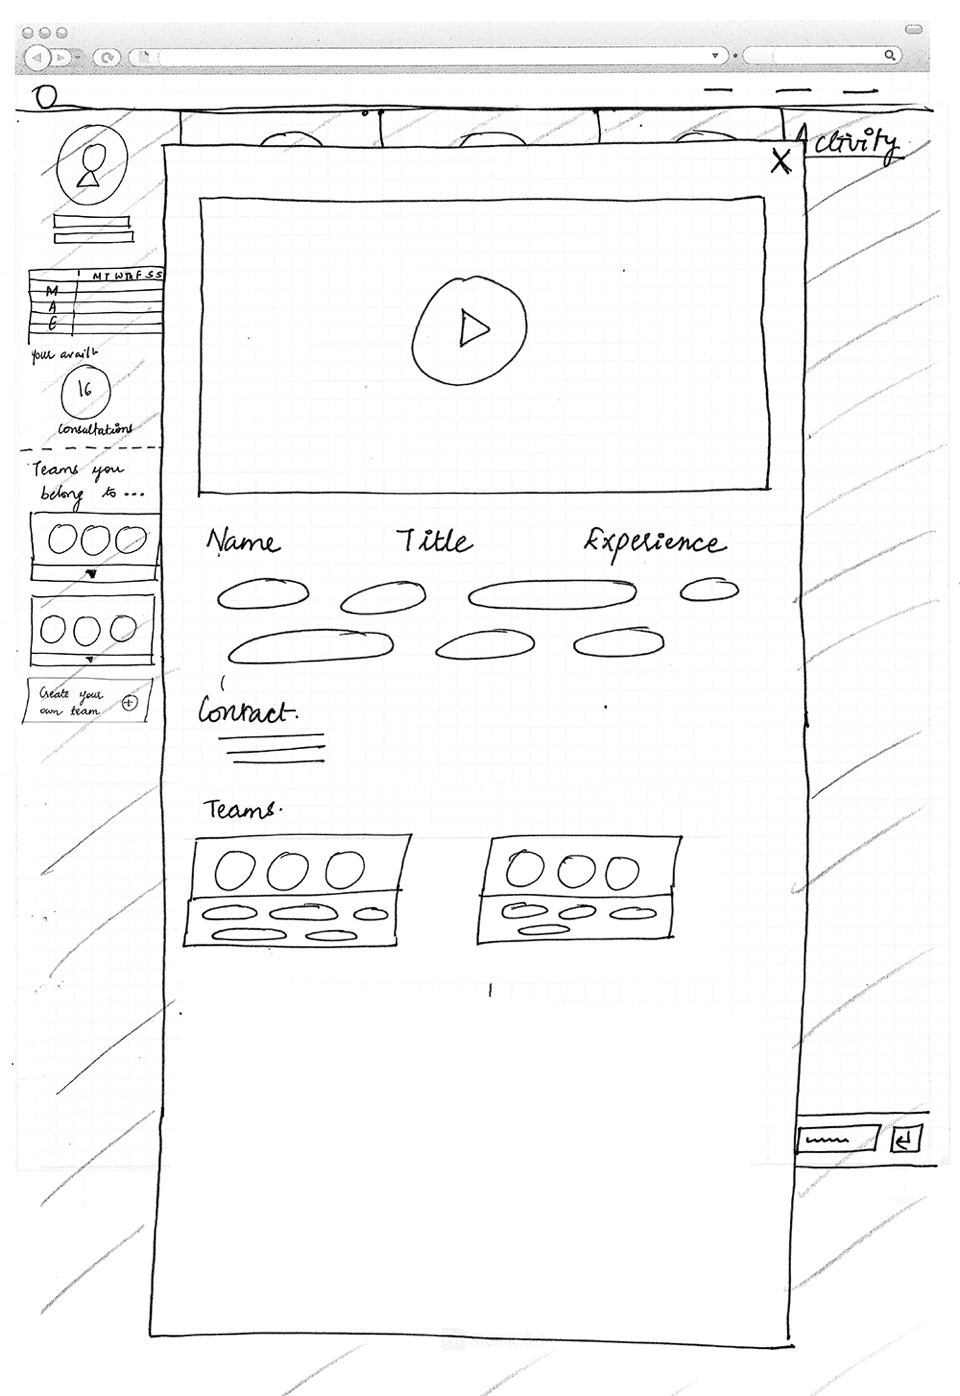 Activity
X
M T W Th F S S
M
A
E
Your avail
16
Consultations
Teams you
belong to ...
Create your
own team
Name Title Experience
Contact.
Teams.